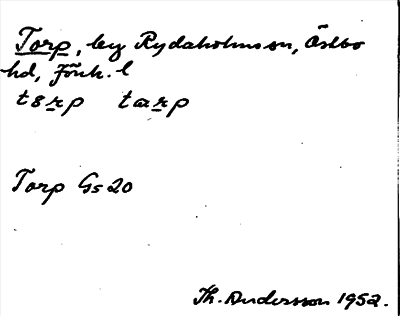 Torp, by Rydaholms sn, Östbo
hd, Jönk. l
tɜrp tarp
Torp Gs 20
Th. Andersson 1952.